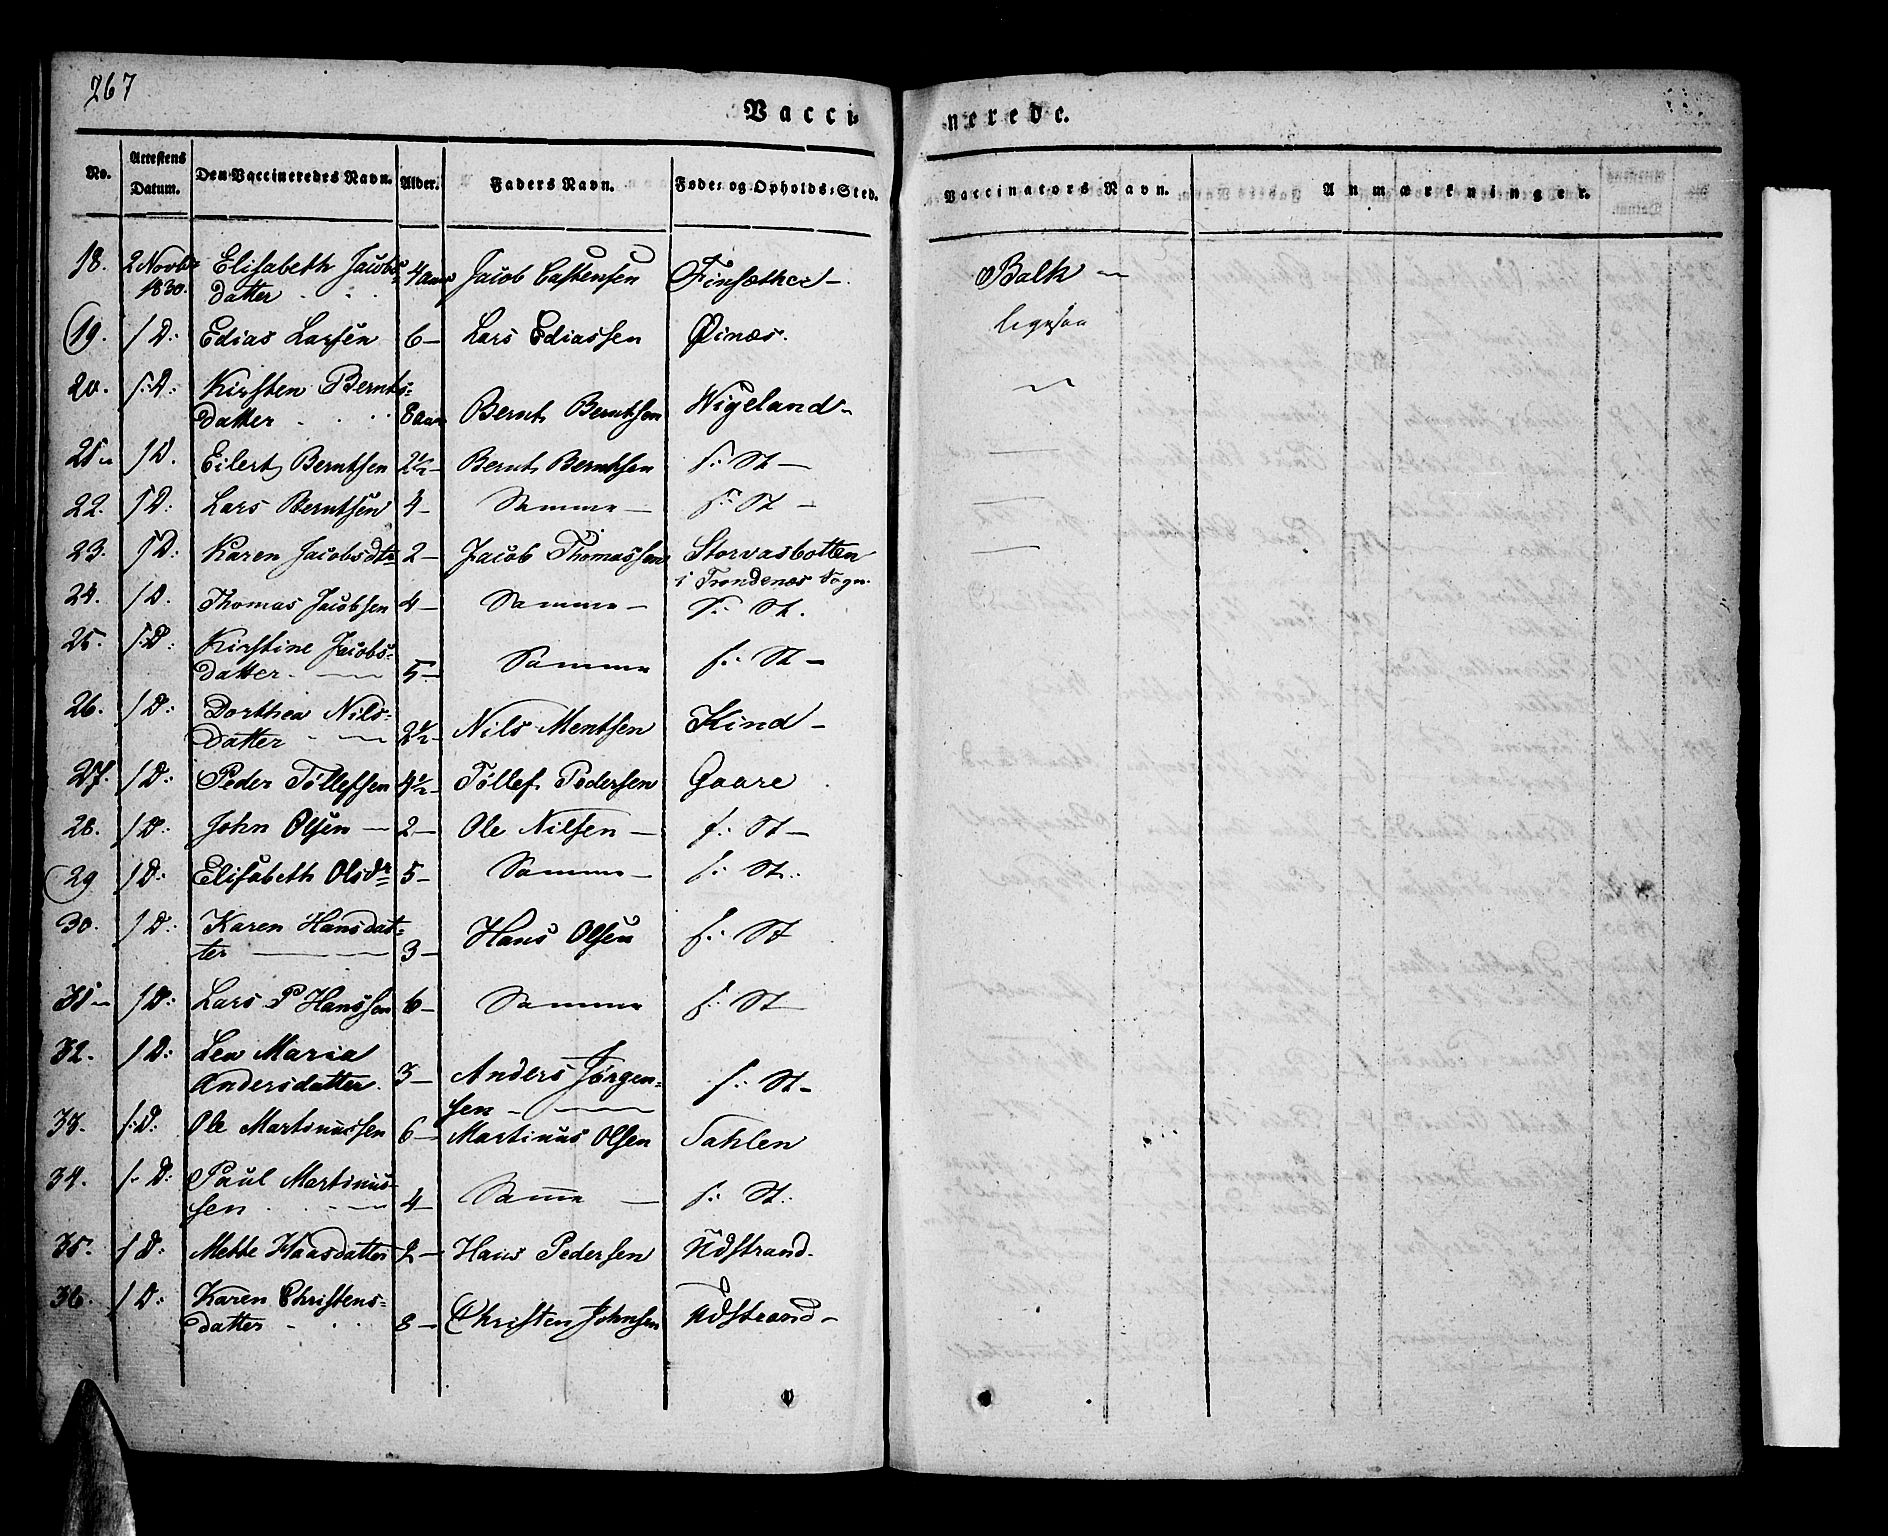 267
Vaccinerede.
No. Attestens Datum. Den Vaccineredes Navn. Alder. Faders Navn. Føde- og Opholds-Sted. Vaccinators Navn. Anmærkninger.
18. 2 Novbr 1830. Elisabeth Jacobs= 4 aar Jacob Castensen Finsæther – Balk –
datter . .
19. s D: Edias Larsen 6– Lars Ediassen Øinæs. ligesaa
20. s: D: Kirsten Bernts= Wigeland –
datter . . 8 aar Bernt Berntsen
21– s D. Eilert Berntsen 2½– Bernt Berntsen s: St –
22. s D: Lars Berntsen 4– Samme – s: St –
23. s D: Karen Jacobsdtr 2– Jacob Thomassen Storvasbotten
i Trondenæs Sogn.
24. s D. Thomas Jacobsen 4– Samme – s: St.
25. s: D: Kirstine Jacobs=
datter. – 5– Samme s: St –
26. s D: Dorthea Nils=
datter – 2½– Nils Mentsen Kind –
27. s D: Peder Tøllefsen 4½– Tøllef Pedersen Gaare
28. s D: John Olsen – 2– Ole Nilsen – s: St –
29 s D: Elisabeth Olsdr 5– Samme – s: St:
30. s D: Karen Hansdat=
ter – 3– Hans Olsen s: St
31– s D: Lars P Hanssen 6– Samme s: St –
32. s D: Lea Maria
Andersdatter. 3– Anders Jørgen= s: St –
sen –
33. s: D: Ole Martinussen 6– Martinus Olsen Sahlen
34. s. D: Paul Martinus=
sen . . – 4– Samme – s: St:
35. s D: Mette Haasdatter 2– Hans Pedersen Udstrand.
36. s D: Karen Christens=
datter – . . 8– Christen Johnsen Udstrand –